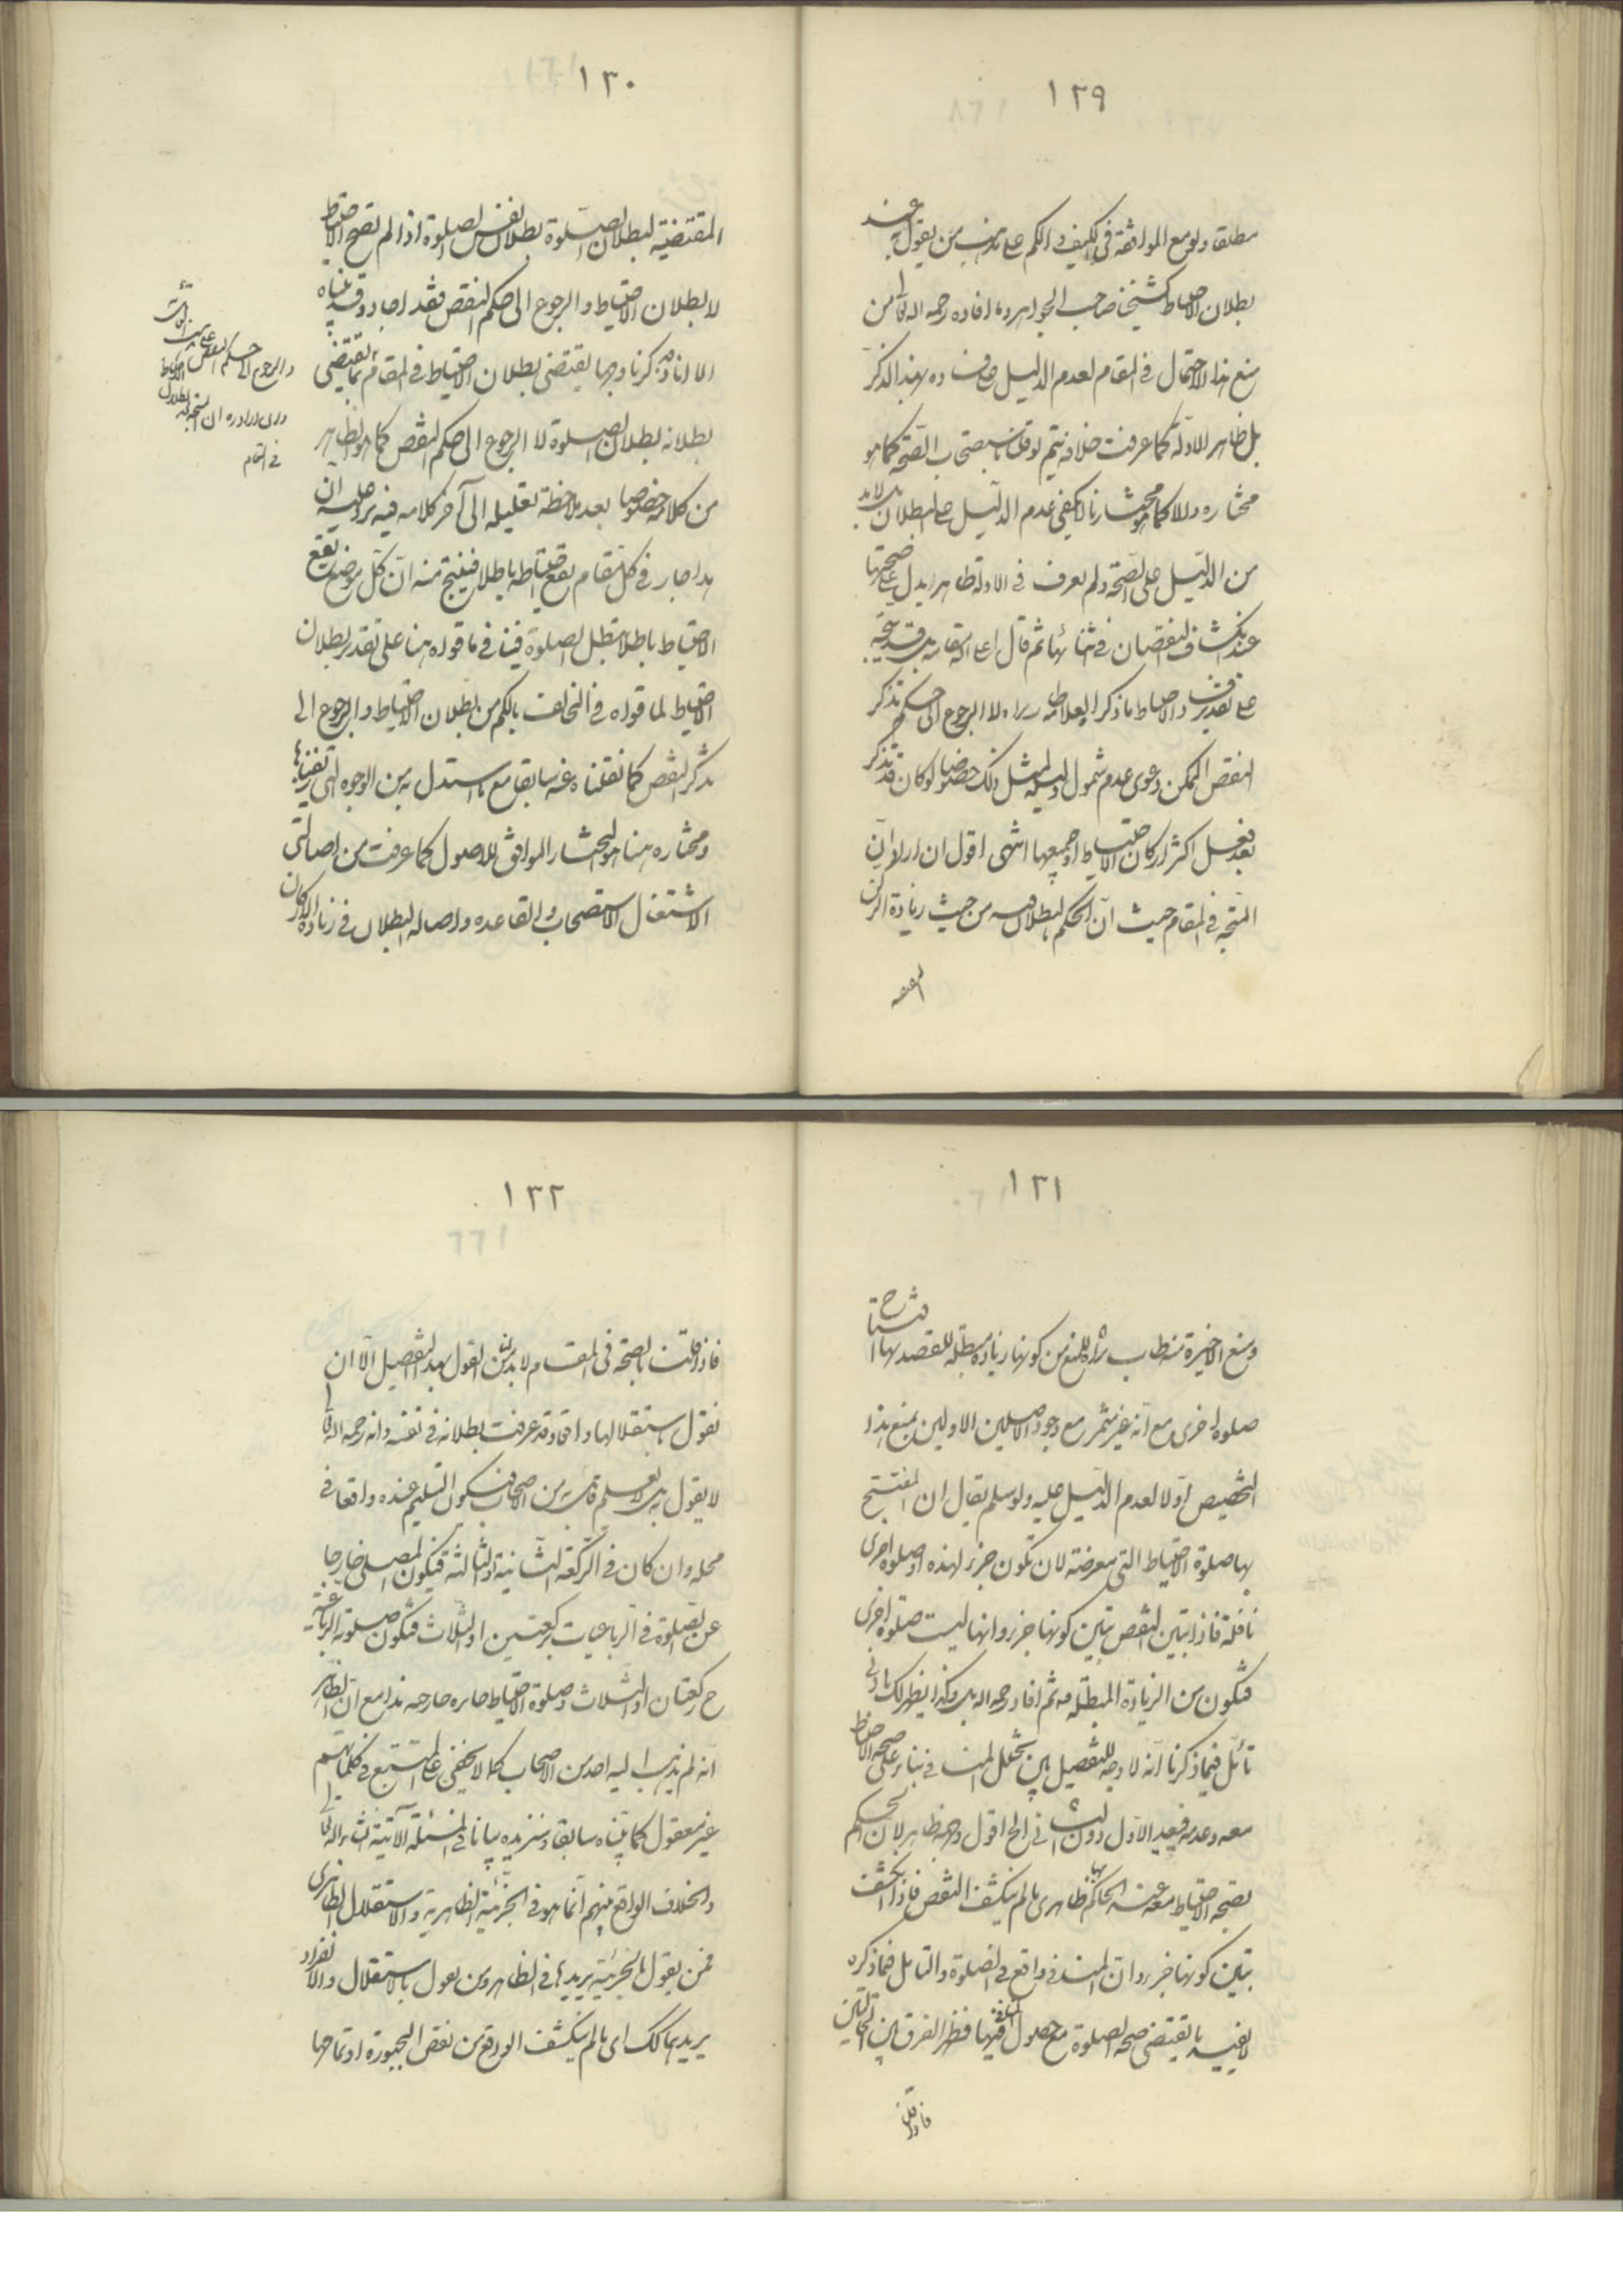 ١٢٩
مطلقا ولو مع الموافقة في الكيف والكم على مذهب من يقول ح
بطلان الاحتياط كشيخنا صاحب الجواهر وما افاده رحمه الله تعالى من
منع هذا الاحتمال في المقام لعدم الدليل على فساده بهذا التذكر
بل ظاهر الادلة كما عرفت خلافه يتم لو قلنا باستصحاب الصحة كما هو
مختاره والا كما هو مختارنا لا يكفي عدم الدليل على البطلان بل لابد
من الدليل على الصحة ولم يعرف في الادلة ظاهر يدل على صحتها
عند انكشاف النقصان في اثنائها ثم قال اعلى الله مقامه
على تقدير الاحتياط ما ذكر العلامة لا الرجوع الى حكم تذكر
النقص الممكن دعوى عدم شمول ادلته لمثل ذلك خصوصا لو كان قد تذكر
بعد فعل اكثر اركان الاحتياط او جميعها انتهى اقول ان اراد ان
المتجه في المقام حيث ان الحكم بالبطلان من حيث زيادة الركن
١٣٠
المقتضية لبطلان الصلوة بطلان نفس الصلوة اذا لم تصح الاحتياط
لا بطلان الاحتياط والرجوع الى حكم النقص فقد اجاد وقد بيناه
الا انا ذكرنا وجها يقتضي بطلان الاحتياط في المقام بما يقتضي
بطلانه بطلان الصلوة لا الرجوع الى حكم النقص كما هو الظاهر
من كلامه خصوصا بعد ملاحظة تعليله الى آخر كلامه فيه يرد عليه ان
هذا جار في كل مقام يقع احتياطه باطلا فينتج منه ان كل موضع يقع
الاحتياط باطلا تبطل الصلوة فينافي ما قواه هنا على تقدير بطلان
الاحتياط لما قواه في المخالف بالكم من بطلان الاحتياط والرجوع الى
تذكر النقص كما نقلناه عنه سابقا مع ما استدل به من الوجوه التي
ومختاره هنا هو المختار الموافق للاصول كما عرفت من اصالتي
الاشتغال والاستصحاب والقاعدة واصالة البطلان في زيادة الاركان
والرجوع الى حكم النقص
في المقام
١٣١
ومنع الاخيرة منه طاب ثراه للمنع من كونها زيادة مبطلة للقصد بها افتتاح
صلوة اخرى مع انه غير مثمر مع وجود الاصلين الاولين يمنع هذا
التخصيص اولا لعدم الدليل عليه ولو سلم يقال ان المفتتح
بها صلوة الاحتياط التي معرضة لان تكون جزء لهذه او صلوة اخرى
نافلة فاذا تبين النقص تبين كونها جزء وانها ليست صلوة اخرى
فتكون من الزيادة المبطلة ثم افاد رحمه الله بل وكذا يظهر لك بادنى
تأمل فيما ذكرنا انه لا وجه للتفصيل بين تخلل المنافي بناء على صحة الاحتياط
معه وعدمه فيعيد الاول دون الثاني الخ اقول وجهه ظاهر لان الحكم
بصحة الاحتياط معه عند الحاكم بها ظاهري ما لم ينكشف النقص فاذا انكشف
تبين كونها جزء وان المنافي واقع في الصلوة والتأمل فيما ذكره
لا يفيد ما يقتضي صحة الصلوة مع حصول المنافي فيها فظهر الفرق بين الحالين
فاذا قلنا
١٣٢
فاذا قلنا بالصحة في المقام لابد من القول بهذا التفصيل الا ان
نقول باستقلالها واقعا وقد عرفت بطلانه في نفسه وانه رحمه الله تعالى
لا يقول به بل لا نعلم قائلا به من الاصحاب فيكون التسليم عنده واقعا في
محله وان كان في الركعة الثانية او الثالثة فيكون المصلي خارجا
عن الصلوة في الرباعيات بركعتين او الثلاث فتكون صلوته الرباعية
ح ركعتان او الثلاث وصلوة الاحتياط جابرة خارجة هذا مع ان الظاهر
انه لم يذهب اليه احد من الاصحاب كما لا يخفى على المتتبع في كلماتهم
غير معقول كما بيناه سابقا وسنزيده بيانا في المسئلة الآتية انشاء الله تعالى
والخلاف الواقع بينهم انما هو في الجزئية الظاهرية والاستقلال الظاهري
فمن يقول بالجزئية يريدها في الظاهر ومن يقول بالاستقلال والانفراد
يريدهما كك اي ما لم ينكشف الواقع من نقص المجبورة او تمامها